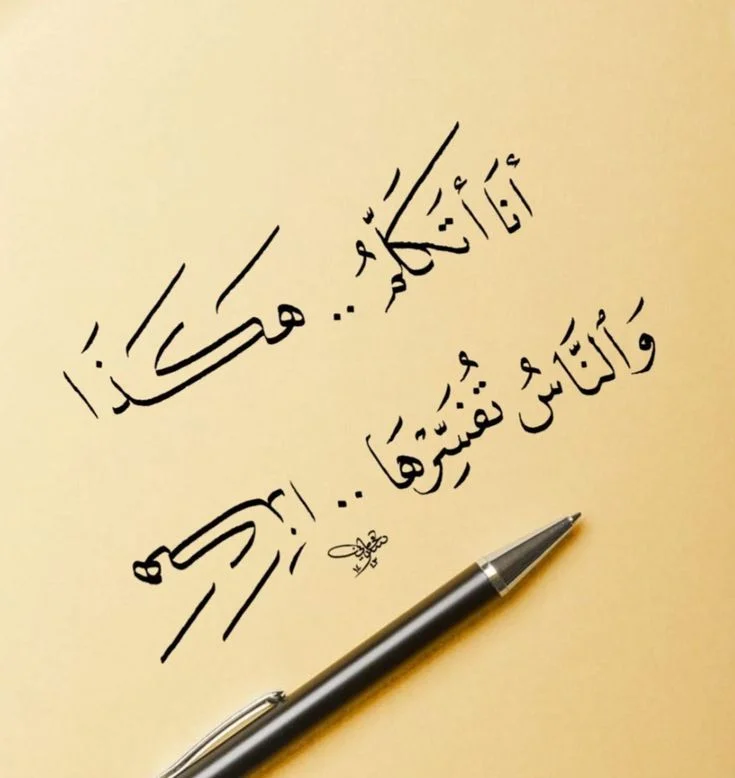 أنَا أتَكَلَّمُ .. هَكَذَا
وَٱلنَّاسُ تُفَسِّرُهَا .. هَكَذَا